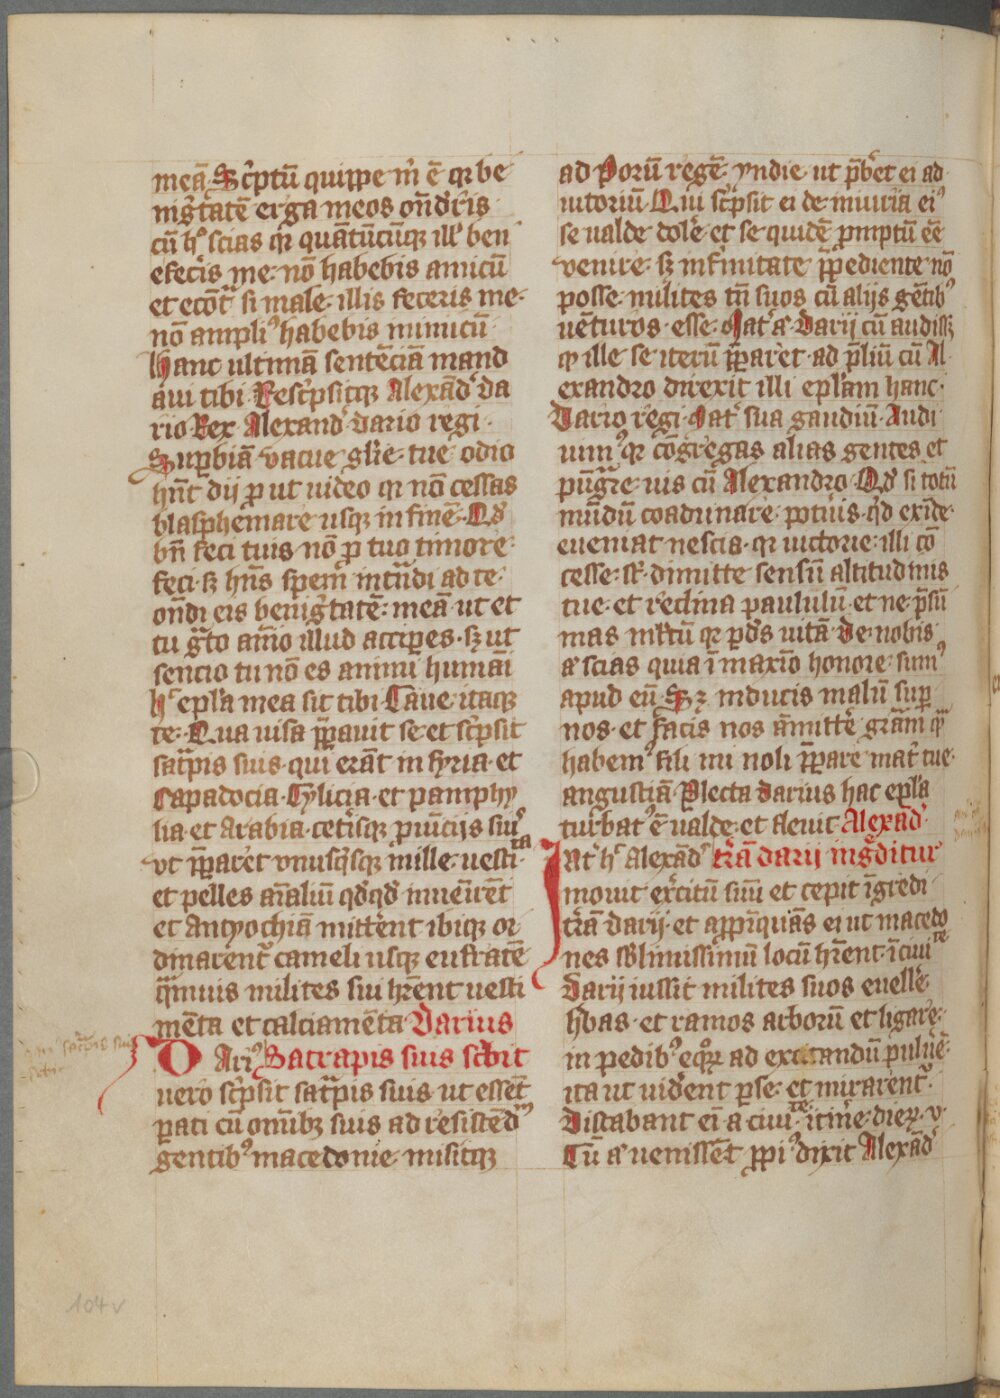 meā Sc̄ptū quippe m̄ ē qr be
nig̅tatē erga meos oñdr̄is
cū hͦ scias qr quātūcūqꝫ illˀ ben
efec̄is me· nō habebis amicū
et ecōt̄ si male illis feceris me·
nō ampliꝰ habebis inimicū
hanc ultimā sentēciā mand
aui tibi· Resc̄psitqꝫ Alexād̄ da
rio Rex Alexand̄ dario regi·
Suꝑbiā vacue gl̄ie tue odio
hn̄t dij ꝓ ut uideo qr nō cessas
blasphemare usqꝫ in finē· Qd̄
bn̄ feci tuis nō ꝓ tuo timore·
feci sꝫ hn̄s spem̄ intūdi ad te·
on̄di eis benig̅tatē meā ut et
tu g̅to aīo illud accipes· sꝫ ut
sencio tu nō es animi humāi
hͨ epl̄a mea sit tibi· Caue itaqꝫ
te· Qua uisa p̄pauit se et sc̄psit
sat̄pis suis· qui erāt in syria et
Capadocia· Cylicia· et pamphy
lia et Arabia· cet̄isqꝫ ꝓuīcijs suis
vt p̄paret vnusq̄sqꝫ mille uesti̅ta
et pelles aīaliū qd̄qd̄ inueīrēt
et Antyochiā mittēnt ibiqꝫ or
dinarent̄ cameli usqꝫ eufratē
q̄muis milites sui hr̄ent uesti
mēta et calciamēta Darius
D Ariꝰ Satrapis suis sc̄bit
vero sc̄psit sat̄pis suis ut essēt
ꝑati cū omībꝫ suis ad resistēdū
gentibꝰ macedonie misitqꝫ
ad Porū regē yndie ut p̄bet ei ad
iutoriū· Qui sc̄psit ei de iniuria eiꝰ
se ualde dole̅ et se quidē ꝓmptū ēē
venire sꝫ infirmitate p̄pediente nō
posse· milites tn̄ suos cū alijs gētibꝰ
uēturos esse· Mat̄ aͧ Darij cū audissꝫ
qͦ ille se iterū p̄paret ad p̄liū cū Al
exandro direxit illi epl̄am hanc·
Dario regi· Mat̄ sua gaudiū· Audi
uimꝰ qr cōgregas alias gentes et
pūgre uis cū Alexandro· Qd̄ si totū
mūdū coadunare potuis qͥd exīde
eueniat nescia· qr uictorie illi cō
cesse st̄· dimitte sensū altitudinis
tue· et reclina paululū et ne p̄sū
mas mltū qr ꝑdis uitā· De nobis
aͧ scias quia ī maxīo honore· sumꝰ
apud eū Sꝫ inducis malū suꝑ
nos· et facis nos āmitte̅ grām q̄
habemꝰ fili mi noli p̄pare mat̄ tue
angustiā· Plecta Darius hac epl̄a
turbatꝰ ē ualde· et fleuit Alexād̄
Iat̄ hͨ Alexād̄ t̄rā darij ing̅ditur
mouit ex̄citū suū et cepit īgredi
t̄rā darij· et appīquās ei ut macedo
nes sblimissimū locū hr̄ent· ī ciuite
Darij iussit milites suos euelle̅
hb̄as· et ramos arborū et ligare·
in pedibꝰ equoꝝ ad excitandū puluē·
ita ut uid̄ent ꝑse· et mirarent̄·
Distabant eī· a ciuite· itin̄e· dieꝝ· v·
Cū aͧ uenissēt ꝓpiꝰ dixit Alexād̄
104v